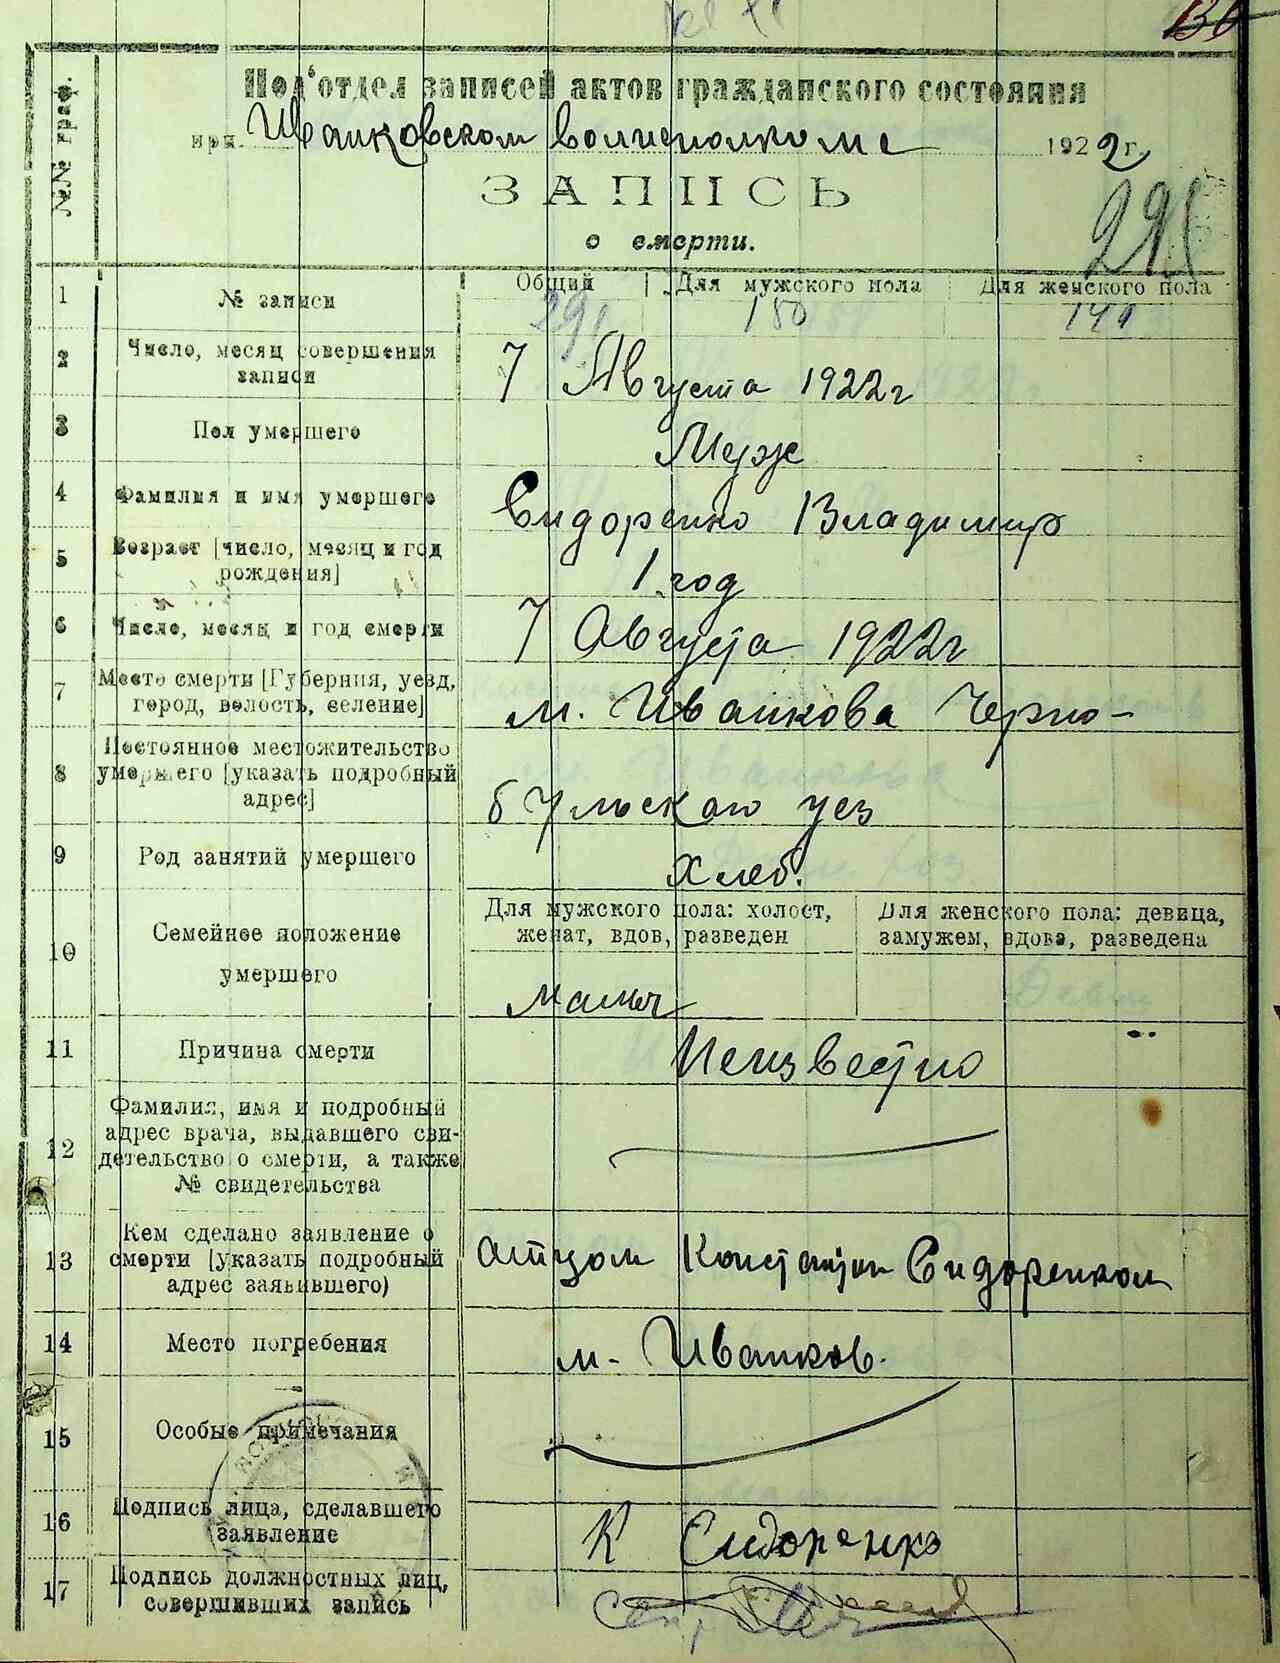 130
Подотдел записей актов гражданского состояния
при Иванковском волисполкоме 1922 г.
ЗАПИСЬ
о смерти.
291
№№ граф.
1 № записи Общий Для мужского пола Для женского пола
291 150 141
2 Число, месяц совершения записи
7 Августа 1922г
3 Пол умершего
Муж
4 Фамилия и имя умершего
Сидоренко Владимир
5 Возраст [число, месяц и год рождения]
1 год
6 Число, месяц и год смерти
7 Августа 1922г
7 Место смерти [Губерния, уезд, город, волость, селение]
м. Иванкова Черно-
8 Постоянное местожительство умершего [указать подробный адрес]
быльскаго уез
9 Род занятий умершего
Хлеб.
10 Семейное положение умершего
Для мужского пола: холост, женат, вдов, разведен
Для женского пола: девица, замужем, вдова, разведена
мальч
11 Причина смерти
Неизвестно
12 Фамилия, имя и подробный адрес врача, выдавшего свидетельство о смерти, а также № свидетельства
13 Кем сделано заявление о смерти [указать подробный адрес заявившего)
Отцом Константин Сидоренком
14 Место погребения
м. Иванков.
15 Особые примечания
16 Подпись лица, сделавшего заявление
К Сидоренко
17 Подпись должностных лиц, совершивших запись